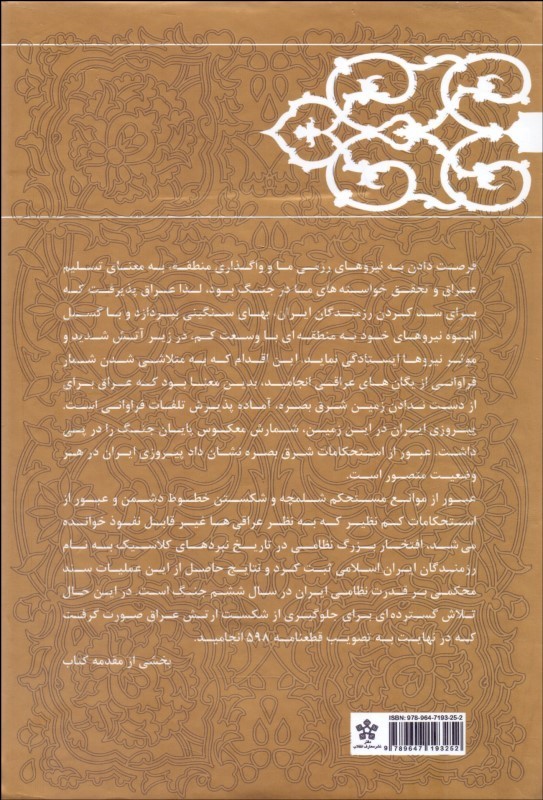 فرصت دادن به نیروهای رزمی ما و واگذاری منطقه، به معنای تسلیم
عراق و تحقق خواسته های ما در جنگ بود، لذا عراق پذیرفت که
برای سد کردن رزمندگان ایران، بهای سنگینی بپردازد و با گسیل
انبوه نیروهای خود به منطقه ای با وسعت کم، در زیر آتش شدید و
موثر نیروها ایستادگی نماید. این اقدام که به متلاشی شدن شمار
فراوانی از یگان های عراقی انجامید، بدین معنا بود که عراق برای
از دست ندادن زمین شرق بصره، آماده پذیرش تلفات فراوانی است.
پیروزی ایران در این زمین، شمارش معکوس پایان جنگ را در پی
داشت. عبور از استحکامات شرق بصره نشان داد پیروزی ایران در هر
وضعیت متصور است.
عبور از موانع مستحکم شلمچه و شکستن خطوط دشمن و عبور از
استحکامات کم نظیر که به نظر عراقی ها غیر قابل نفوذ خوانده
می شد، افتخار بزرگ نظامی در تاریخ نبردهای کلاسیک به نام
رزمندگان ایران اسلامی ثبت کرد و نتایج حاصل از این عملیات سند
محکمی بر قدرت نظامی ایران در سال ششم جنگ است. در این حال
تلاش گسترده ای برای جلوگیری از شکست ارتش عراق صورت گرفت
که در نهایت به تصویب قطعنامه ۵۹۸ انجامید.
بخشی از مقدمه کتاب
ISBN: 978-964-7193-25-2
9 789647 193252
دفتر
نشر معارف انقلاب